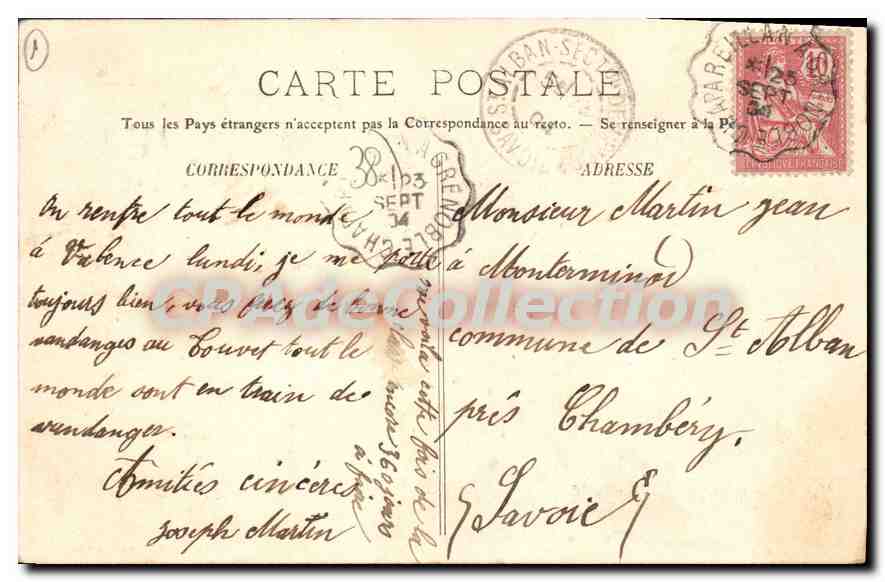 1
CARTE POSTALE
Tous les Pays étrangers n'acceptent pas la Correspondance au recto. – Se renseigner à la Po
CORRESPONDANCE
ADRESSE
38
23
SEPT
04
GRENOBLE
23
SEPT
04
10
RÉPUBLIQUE FRANÇAISE
On rentre tout le monde
à Valence lundi, je me porte
toujours bien, vous avez de bonne
vandanges au Touvet tout le
monde sont en train de
vandanger.
Amitiés cincères
Joseph Martin
me voila cette fois de la
classe mon 360 jours
à faire
Monsieur Martin Jean
à Monterminod
commune de St Alban
près Chambéry.
Savoie
CPAdeCollection